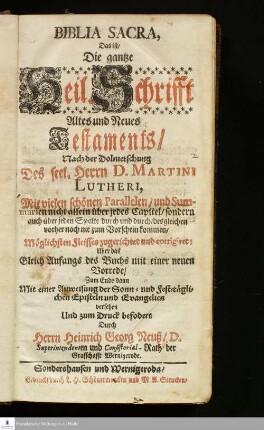 BIBLIA SACRA,
Das ist/
Die gantze
Heil. Schrifft
Altes und Neues
Testaments/
Nach der Dolmetschung
Des seel. Herrn D. MARTINI
LUTHERI,
Mit vielen schönen Parallelen/ und Sum-
marien nicht allein über jedes Capitel/ sondern
auch über jeden Spalte durch und durch/ desgleichen
vorher noch nie zum Vorschein kommen/
Möglichsten Fleisses zugerichtet und corrigiret:
Uber das
Gleich Anfangs des Buchs mit einer neuen
Vorrede/
Zum Ende dann
Mit einer Anweisung der Sonn- und Festtägli-
chen Episteln und Evangelien
versehen
Und zum Druck befodert
Durch
Herrn Heinrich Georg Neuß/ D.
Superintendenten und Consistorial-Rath der
Graffschafft Wernigerode.
Sondershausen und Wernigeroda/